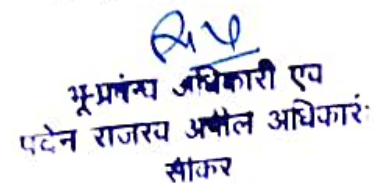 भू-प्रबंन्ध अधिकारी एंव
पदेन राजस्व अपील अधिकारी
सीकर